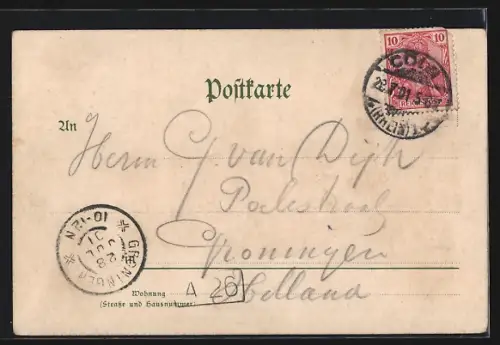 10 10
CÖLN
(RHEIN)
Postkarte
An
Herrn G. van Dijk
Poelestraat
Groningen
Holland
GRONINGEN
28 JUL 01
10-12N
Wohnung
(Straße und Hausnummer)
A 26